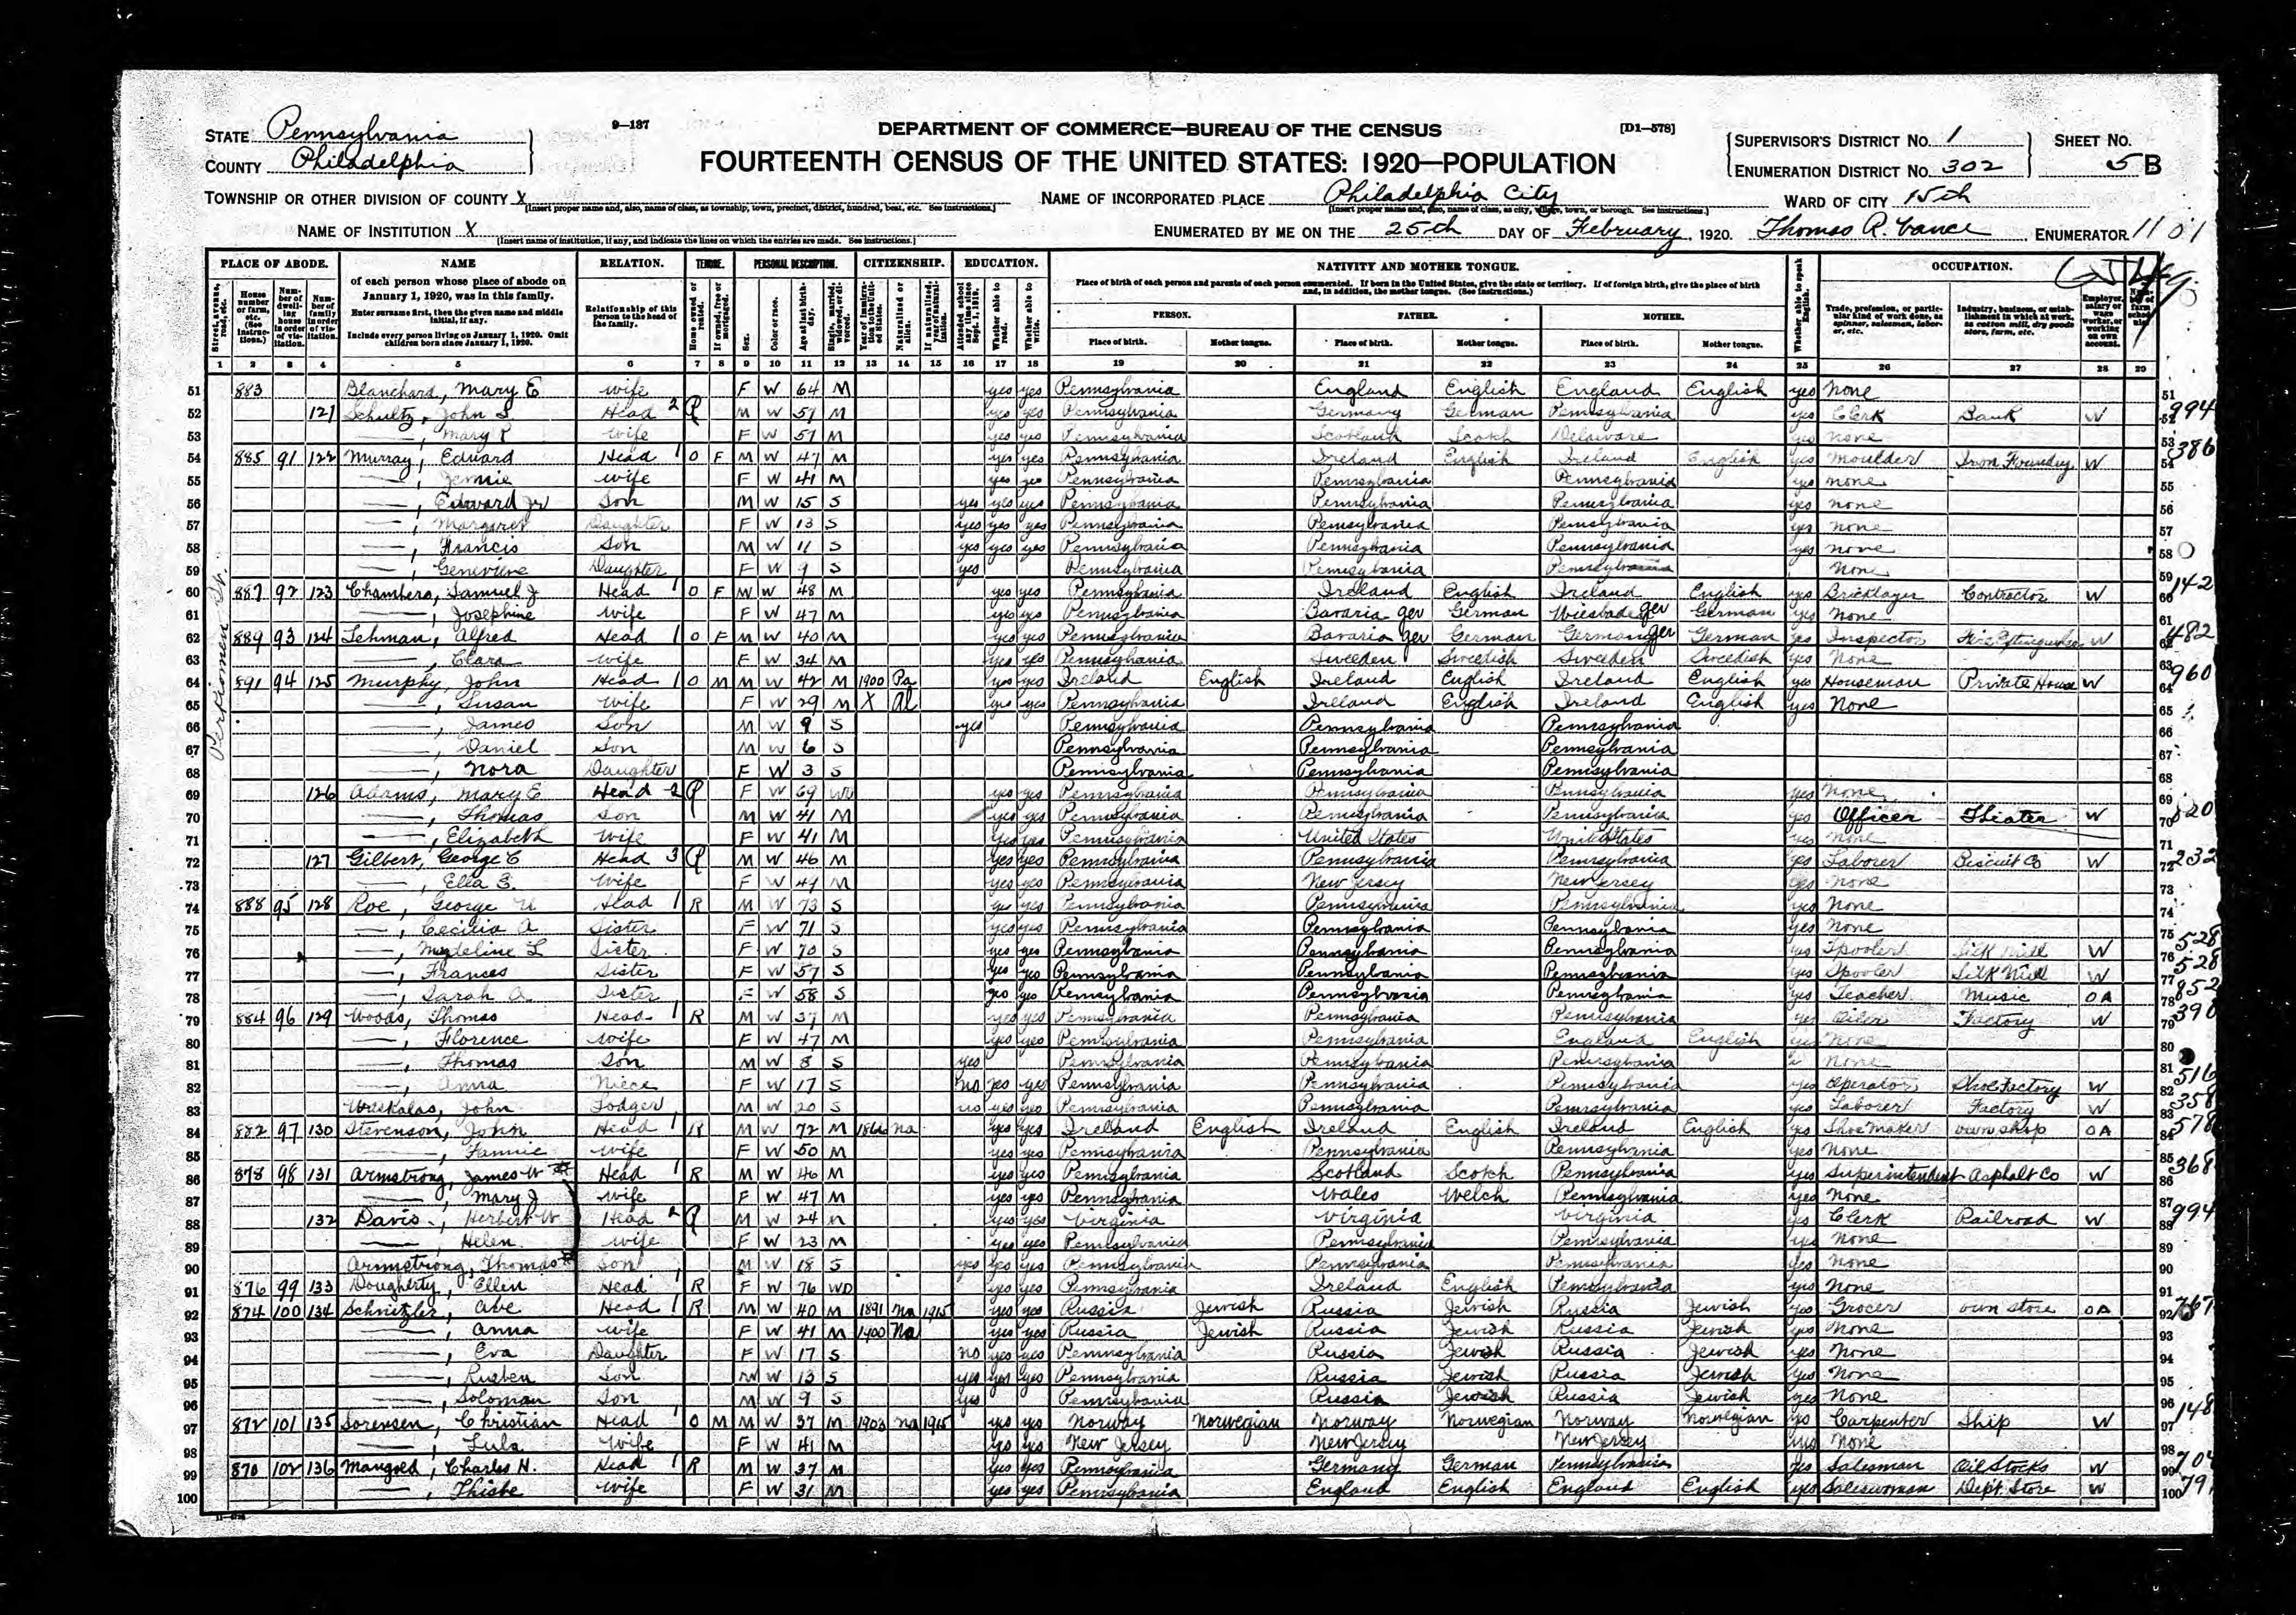 9—137
DEPARTMENT OF COMMERCE—BUREAU OF THE CENSUS
[D1—578]
STATE Pennsylvania
COUNTY Philadelphia
FOURTEENTH CENSUS OF THE UNITED STATES: 1920—POPULATION
SUPERVISOR'S DISTRICT No. 1
ENUMERATION DISTRICT No. 302
SHEET No.
5 B
TOWNSHIP OR OTHER DIVISION OF COUNTY X
[Insert proper name and, also, name of class, as township, town, precinct, district, hundred, beat, etc. See instructions.]
NAME OF INCORPORATED PLACE Philadelphia City
[Insert proper name and, also, name of class, as city, village, town, or borough. See instructions.]
WARD OF CITY 15th
NAME OF INSTITUTION X
[Insert name of institution, if any, and indicate the lines on which the entries are made. See instructions.]
ENUMERATED BY ME ON THE 25th DAY OF February, 1920. Thomas R. Vance ENUMERATOR
1101
PLACE OF ABODE. NAME RELATION. TENURE. PERSONAL DESCRIPTION. CITIZENSHIP. EDUCATION. NATIVITY AND MOTHER TONGUE. OCCUPATION.
of each person whose place of abode on January 1, 1920, was in this family.
Enter surname first, then the given name and middle initial, if any.
Include every person living on January 1, 1920. Omit children born since January 1, 1920.
Relationship of this person to the head of the family.
Place of birth of each person and parents of each person enumerated. If born in the United States, give the state or territory. If of foreign birth, give the place of birth and, in addition, the mother tongue. (See instructions.)
PERSON. FATHER. MOTHER.
Place of birth. Mother tongue. Place of birth. Mother tongue. Place of birth. Mother tongue.
Whether able to speak English.
1 2 3 4 5 6 7 8 9 10 11 12 13 14 15 16 17 18 19 20 21 22 23 24 25 26 27 28 29
Perkiomen St.
51 883 Blanchard, Mary E wife F W 64 M yes yes Pennsylvania England English England English yes None 51
52 121 Schultz, John S. Head 2 R M W 57 M yes yes Pennsylvania Germany German Pennsylvania yes Clerk Bank W 52 994
53 —, Mary wife F W 57 M yes yes Pennsylvania Scotland Scotch Delaware yes none 53
54 885 91 122 Murray, Edward Head 1 O F M W 47 M yes yes Pennsylvania Ireland English Ireland English yes Moulder Iron Foundry W 54 386
55 —, Jennie wife F W 41 M yes yes Pennsylvania Pennsylvania Pennsylvania yes none 55
56 —, Edward Jr Son M W 15 S yes yes yes Pennsylvania Pennsylvania Pennsylvania yes none 56
57 —, Margaret Daughter F W 13 S yes yes yes Pennsylvania Pennsylvania Pennsylvania yes none 57
58 —, Francis Son M W 11 S yes yes yes Pennsylvania Pennsylvania Pennsylvania yes none 58
59 —, Genevieve Daughter F W 9 S yes Pennsylvania Pennsylvania Pennsylvania None 59
60 887 92 123 Chambers, Samuel J Head 1 O F M W 48 M yes yes Pennsylvania Ireland English Ireland English yes Bricklayer Contractor W 60 142
61 —, Josephine wife F W 47 M yes yes Pennsylvania Bavaria ger German Wiesbade ger German yes None 61
62 889 93 124 Lehman, Alfred Head 1 O F M W 40 M yes yes Pennsylvania Bavaria ger German German ger German yes Inspector Fire Extinguisher W 62 482
63 —, Clara wife F W 34 M yes yes Pennsylvania Sweeden Swedish Sweeden Swedish yes None 63
64 891 94 125 Murphy, John Head 1 O M M W 42 M 1900 Pa yes yes Ireland English Ireland English Ireland English yes Houseman Private House W 64 960
65 —, Susan wife F W 29 M X al yes yes Pennsylvania Ireland English Ireland English yes None 65
66 —, James Son M W 9 S yes Pennsylvania Pennsylvania Pennsylvania 66
67 —, Daniel Son M W 6 S Pennsylvania Pennsylvania Pennsylvania 67
68 —, Nora Daughter F W 3 S Pennsylvania Pennsylvania Pennsylvania 68
69 126 Adams, Mary E Head 2 R F W 69 WD yes yes Pennsylvania Pennsylvania Pennsylvania yes None 69
70 —, Thomas Son M W 41 M yes yes Pennsylvania Pennsylvania Pennsylvania yes Officer Theater W 70 820
71 —, Elizabeth Wife F W 41 M yes yes Pennsylvania United States United States yes none 71
72 127 Gilbert, George C Head 3 R M W 46 M yes yes Pennsylvania Pennsylvania Pennsylvania yes Laborer Biscuit Co W 72 232
73 —, Ella S. Wife F W 49 M yes yes Pennsylvania New Jersey New Jersey yes none 73
74 888 95 128 Roe, George Head 1 R M W 73 S yes yes Pennsylvania Pennsylvania Pennsylvania yes None 74
75 —, Cecilia A Sister F W 71 S yes yes Pennsylvania Pennsylvania Pennsylvania yes None 75
76 —, Madeline L Sister F W 70 S yes yes Pennsylvania Pennsylvania Pennsylvania yes Spooler Silk Mill W 76 528
77 —, Frances Sister F W 57 S yes yes Pennsylvania Pennsylvania Pennsylvania yes Spooler Silk Mill W 77 528
78 —, Sarah A. Sister F W 58 S yes yes Pennsylvania Pennsylvania Pennsylvania yes Teacher Music OA 78 852
79 884 96 129 Woods, Thomas Head 1 R M W 37 M yes yes Pennsylvania Pennsylvania Pennsylvania yes Oiler Factory W 79 390
80 —, Florence wife F W 47 M yes yes Pennsylvania Pennsylvania England English yes None 80
81 —, Thomas Son M W 8 S yes Pennsylvania Pennsylvania Pennsylvania None 81
82 —, Anna Niece F W 17 S no yes yes Pennsylvania Pennsylvania Pennsylvania yes Operator Shoe Factory W 82 516
83 John Lodger M W 20 S no yes yes Pennsylvania Pennsylvania Pennsylvania yes Laborer Factory W 83 358
84 882 97 130 Stevenson, John Head 1 R M W 72 M 1866 na yes yes Ireland English Ireland English Ireland English yes Shoemaker own shop OA 84 578
85 —, Fannie wife F W 50 M yes yes Pennsylvania Pennsylvania Pennsylvania yes None 85
86 878 98 131 Armstrong, James W Head 1 R M W 46 M yes yes Pennsylvania Scotland Scotch Pennsylvania yes Superintendent Asphalt Co W 86 368
87 —, Mary J wife F W 47 M yes yes Pennsylvania Wales Welch Pennsylvania yes None 87
88 132 Davis, Herbert W Head 2 R M W 24 M yes yes Virginia Virginia Virginia yes Clerk Railroad W 88 994
89 —, Helen wife F W 23 M yes yes Pennsylvania Pennsylvania Pennsylvania yes None 89
90 Armstrong, Thomas Son M W 18 S yes yes yes Pennsylvania Pennsylvania Pennsylvania yes None 90
91 876 99 133 Dougherty, Ellen Head 1 R F W 76 WD yes yes Pennsylvania Ireland English Pennsylvania yes None 91
92 874 100 134 Schnitzler, Abe Head 1 R M W 40 M 1891 na 1915 yes yes Russia Jewish Russia Jewish Russia Jewish yes Grocer own store OA 92 767
93 —, Anna wife F W 41 M 1900 Na yes yes Russia Jewish Russia Jewish Russia Jewish yes None 93
94 —, Eva Daughter F W 17 S no yes yes Pennsylvania Russia Jewish Russia Jewish yes None 94
95 —, Rueben Son M W 13 S yes yes yes Pennsylvania Russia Jewish Russia Jewish yes None 95
96 —, Soloman Son M W 9 S yes Pennsylvania Russia Jewish Russia Jewish yes None 96
97 872 101 135 Sorensen, Christian Head 1 O M M W 37 M 1903 na 1915 yes yes Norway Norwegian Norway Norwegian Norway Norwegian yes Carpenter Ship W 97 148
98 —, Lula Wife F W 41 M yes yes New Jersey New Jersey New Jersey yes None 98
99 870 102 136 Mangold, Charles H. Head 1 R M W 37 M yes yes Pennsylvania Germany German Pennsylvania yes Salesman Oil Stocks W 99 704
100 —, Wife F W 31 M yes yes Pennsylvania England English England English yes Saleswoman Dept Store W 100 79